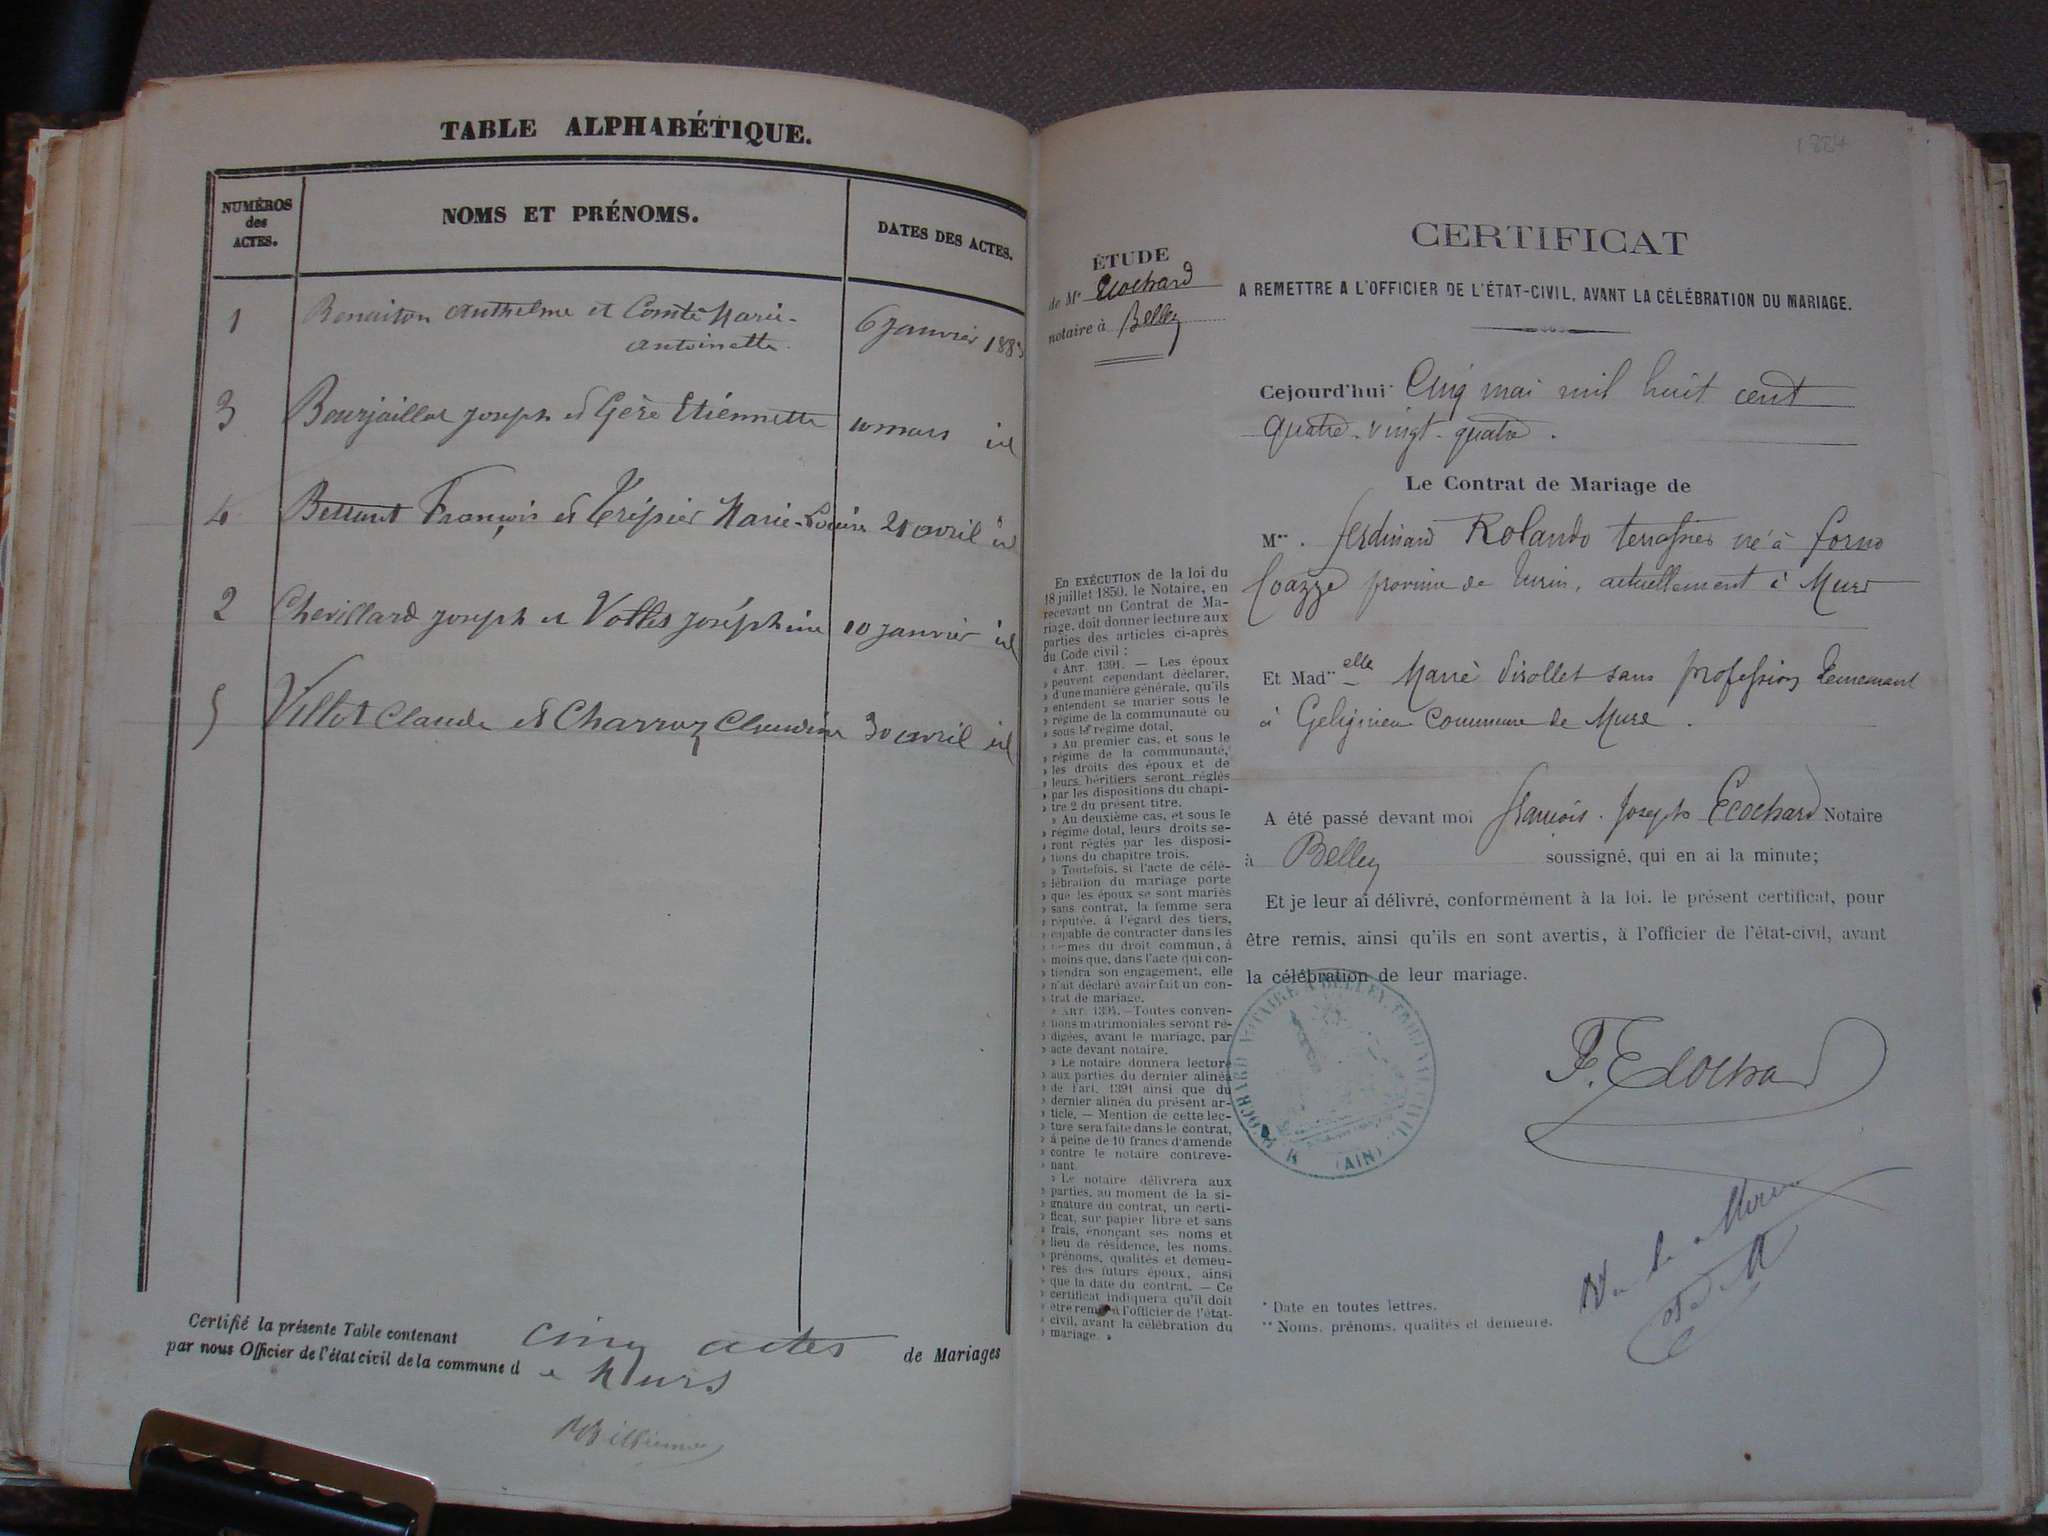 TABLE ALPHABÉTIQUE.
NUMÉROS
des
ACTES.
NOMS ET PRÉNOMS.
DATES DES ACTES.
1 Benaiton Anthelme et Comte Marie- 6 janvier 1883
Antoinette.
3 Bourjaillat Joseph et Gère Etiénnette 10 mars id
4 François et Trépier Marie-Louise 21 avril id
2 Chevillard Joseph et Joséphine 10 janvier id
5 Villot Claude et Charruz Claudine 30 avril id
Certifié la présente Table contenant cinq actes de Mariages
par nous Officier de l'état civil de la commune de Murs
1884
ÉTUDE
de Me Ecochard
notaire à Belley
En EXÉCUTION de la loi du
18 juillet 1850, le Notaire, en
recevant un Contrat de Ma-
riage, doit donner lecture aux
parties des articles ci-après
du Code civil :
« ART. 1391. — Les époux
» peuvent cependant déclarer,
» d'une manière générale, qu'ils
» entendent se marier sous le
» régime de la communauté ou
» sous le régime dotal.
» Au premier cas, et sous le
» régime de la communauté,
» les droits des époux et de
» leurs héritiers seront réglés
» par les dispositions du chapi-
» tre 2 du présent titre.
» Au deuxième cas, et sous le
» régime dotal, leurs droits se-
» ront réglés par les disposi-
» tions du chapitre trois.
» Toutefois, si l'acte de célé-
» bration du mariage porte
» que les époux se sont mariés
» sans contrat, la femme sera
» réputée, à l'égard des tiers,
» capable de contracter dans les
» termes du droit commun, à
» moins que, dans l'acte qui con-
» tiendra son engagement, elle
» n'ait déclaré avoir fait un con-
» trat de mariage.
» ART. 1394. — Toutes conven-
» tions matrimoniales seront ré-
» digées, avant le mariage, par
» acte devant notaire.
» Le notaire donnera lecture
» aux parties du dernier alinéa
» de l'art. 1391 ainsi que du
» dernier alinéa du présent ar-
» ticle. — Mention de cette lec-
» ture sera faite dans le contrat,
» à peine de 10 francs d'amende
» contre le notaire contreve-
» nant.
» Le notaire délivrera aux
» parties, au moment de la si-
» gnature du contrat, un certi-
» ficat, sur papier libre et sans
» frais, énonçant ses noms et
» lieu de résidence, les noms,
» prénoms, qualités et demeu-
» res des futurs époux, ainsi
» que la date du contrat. — Ce
» certificat indiquera qu'il doit
» être remis à l'officier de l'état-
» civil, avant la célébration du
» mariage. »
CERTIFICAT
A REMETTRE A L'OFFICIER DE L'ÉTAT-CIVIL, AVANT LA CÉLÉBRATION DU MARIAGE.
Cejourd'hui* Cinq mai mil huit cent
quatre-vingt-quatre.
Le Contrat de Mariage de
M**. Ferdinand Rolando terrassier né à Forno
Coazze province de Turin, actuellement à Murs
Et Mad** elle Marie Virollet sans profession demeurant
à Gelignieu commune de Murs.
A été passé devant moi François-Joseph Ecochard Notaire
à Belley soussigné, qui en ai la minute;
Et je leur ai délivré, conformément à la loi, le présent certificat, pour
être remis, ainsi qu'ils en sont avertis, à l'officier de l'état-civil, avant
la célébration de leur mariage.
Me ECOCHARD NOTAIRE A BELLEY, TRIBUNAL CIVIL
(AIN)
F. Ecochard
* Date en toutes lettres.
** Noms, prénoms, qualités et demeure.